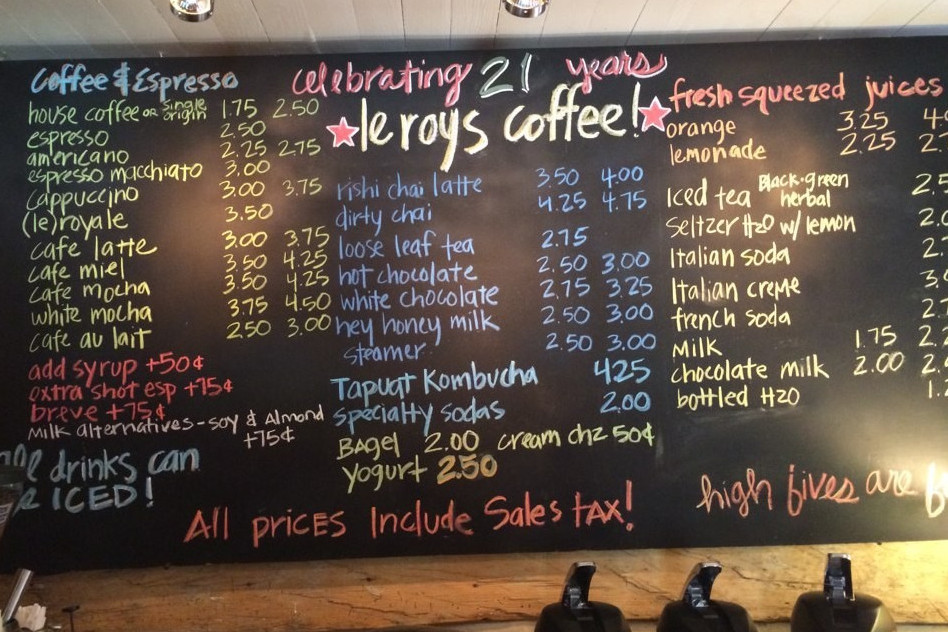 Coffee & Espresso
house coffee OR Single origin 1.75 2.50
espresso 2.50
americano 2.25 2.75
espresso macchiato 3.00
cappuccino 3.00 3.75
(le)royale 3.50
cafe latte 3.00 3.75
cafe miel 3.50 4.25
cafe mocha 3.50 4.25
white mocha 3.75 4.50
cafe au lait 2.50 3.00
add syrup +50¢
extra shot esp +75¢
breve +75¢
Milk alternatives - soy & Almond
+75¢
drinks can
ICED!
celebrating 21 years
leroys coffee!
rishi chai latte 3.50 4.00
dirty chai 4.25 4.75
loose leaf tea 2.75
hot chocolate 2.50 3.00
white chocolate 2.75 3.25
hey honey milk 2.50 3.00
steamer 2.50 3.00
Tapuat Kombucha 4.25
specialty sodas 2.00
Bagel 2.00 cream chz 50¢
Yogurt 2.50
All prices Include Sales tax!
fresh squeezed juices
orange 3.25
lemonade 2.25
Iced tea Black·green herbal
seltzer H2O w/ lemon
Italian soda
Italian creme
french soda
Milk 1.75
chocolate milk 2.00
bottled H2O
high fives are